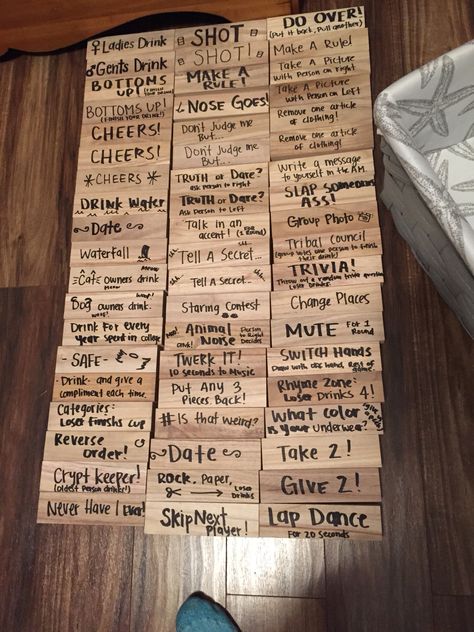 ♀ Ladies Drink
♂ Gents Drink
BOTTOMS
UP! (FINISH YOUR DRINK!)
BOTTOMS UP!
(FINISH YOUR DRINK!)
CHEERS!
CHEERS!
*CHEERS*
DRINK Water
Date
Waterfall
Cat owners drink
meow
Dog owners drink.
Drink For every
Year Spent in college
- SAFE -
-Drink- and give a
compliment each time.
Categories:
Loser finishes cup
Reverse
order!
Crypt keeper!
(oldest person drinks!)
Never Have I Ever!
SHOT
SHOT!
MAKE A
RULE!
NOSE GOES!
Don't Judge me
But...
Don't Judge me
But...
TRUTH or DARE?
Ask person to right
TRUTH or DARE?
Ask Person to Left
Talk in an
accent! (1 Round)
Tell A Secret...
Tell A Secret...
Staring Contest
Animal
Noise
Person to Right Decides
TWERK IT!
10 seconds to Music
Put Any 3
Pieces Back!
# Is that weird?
Date
ROCK, PAPER,
Loser Drinks
Skip Next
Player!
DO OVER!
(Put it back, Pull another)
Make A Rule!
Take A Picture
with Person on Right
Take A Picture
with Person on Left
Remove one article
of clothing!
Remove one article
of clothing!
Write a message
to yourself in the A.M.
SLAP Someones
ASS!
Group Photo
Tribal Council
(group votes one person to finish
their drink)
TRIVIA!
Throw out a random trivia question
Loser drinks.
Change Places
MUTE For 1
Round
SWITCH Hands
Draw with off hand, Rest of game.
Rhyme Zone:
Loser Drinks 4!
What color
is your Underwear?
Take 2!
GIVE 2!
Lap Dance
For 20 Seconds